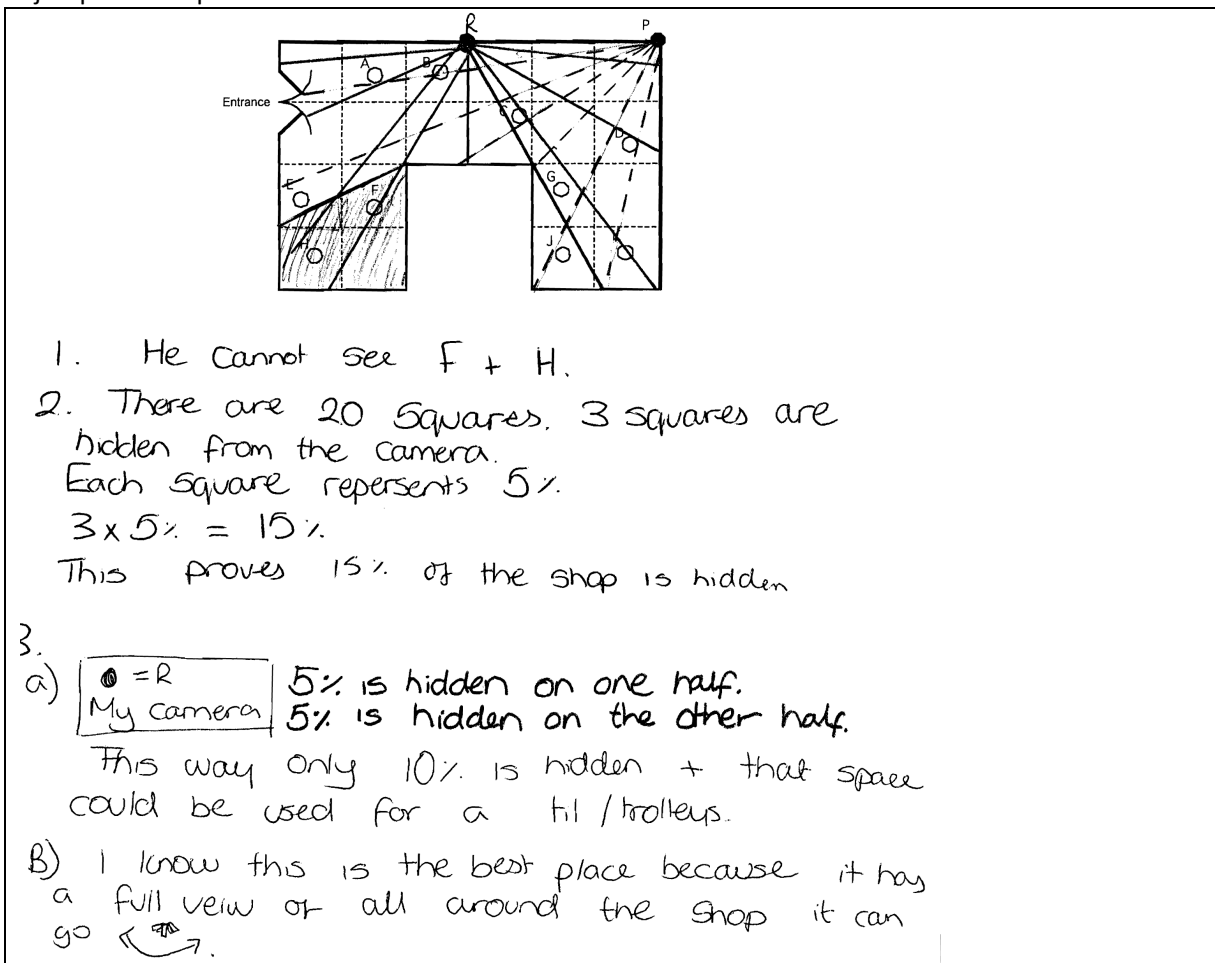 R
P
A
B
Entrance
C
D
E
F
G
H
J
1. He cannot see F + H.
2. There are 20 squares. 3 squares are
hidden from the camera.
Each square repersents 5%
3 x 5% = 15%.
This proves 15% of the shop is hidden
3.
a) = R 5% is hidden on one half.
My camera 5% is hidden on the other half.
This way only 10% is hidden + that space
could be used for a til / trolleys.
B) I know this is the best place because it has
a full veiw of all around the shop it can
go